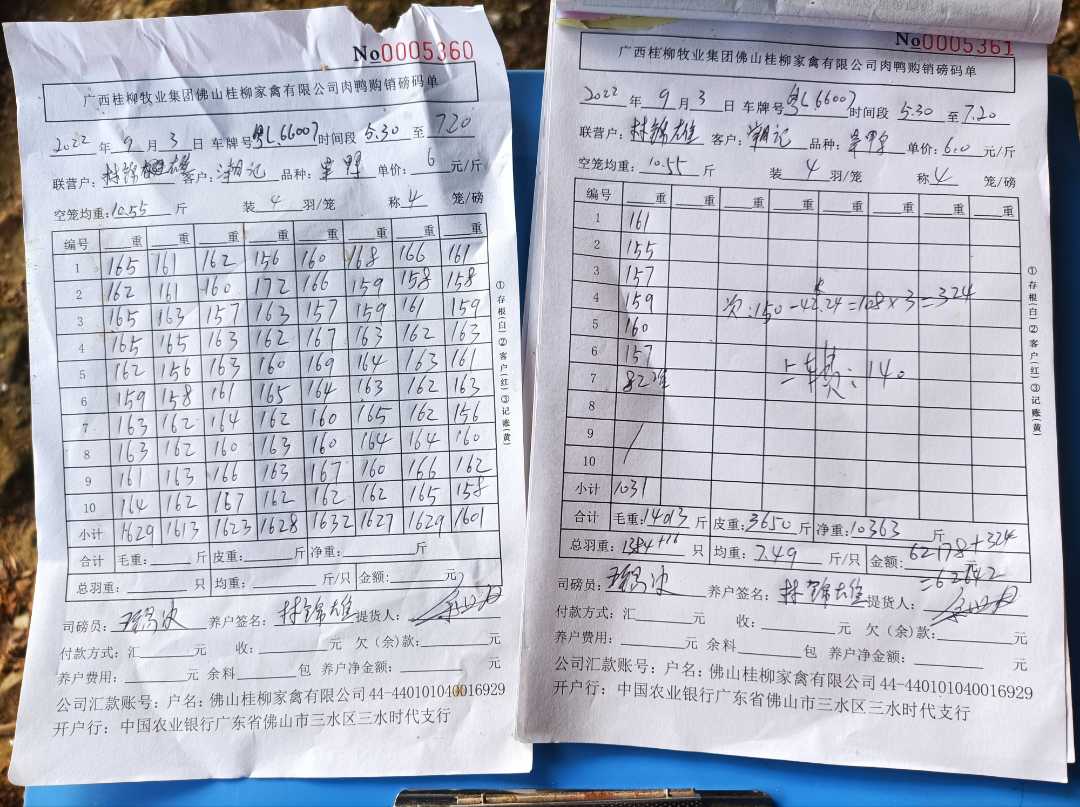 No0005360
广西桂柳牧业集团佛山桂柳家禽有限公司肉鸭购销磅码单
2022 年 9 月 3 日 车牌号 粤L66007 时间段 5.30 至 7.20
联营户: 林锦雄 客户: 潮记 品种: 单价: 6 元/斤
空笼均重: 10.55 斤 装 4 羽/笼 称 4 笼/磅
编号 重 重 重 重 重 重 重 重
1 165 161 162 156 160 168 166 161
2 162 161 160 172 166 159 158 158
3 165 163 157 163 157 159 161 159
4 165 165 163 162 167 163 162 163
5 162 156 163 160 169 164 163 161
6 159 158 161 165 164 163 162 163
7 163 162 164 162 160 165 162 156
8 163 162 160 163 160 164 164 160
9 161 163 166 163 167 160 166 162
10 164 162 167 162 162 162 165 158
小计 1629 1613 1623 1628 1632 1627 1629 1601
合计 毛重: 斤 皮重: 斤 净重: 斤
总羽重: 只 均重: 斤/只 金额: 元
司磅员: 养户签名: 林锦雄 提货人:
付款方式: 汇 元 收: 元 欠(余)款: 元
养户费用: 元 余料 包 养户净金额: 元
公司汇款账号: 户名: 佛山桂柳家禽有限公司 44-440101040016929
开户行: 中国农业银行广东省佛山市三水区三水时代支行
①存根(白)②客户(红)③记账(黄)
No0005361
广西桂柳牧业集团佛山桂柳家禽有限公司肉鸭购销磅码单
2022 年 9 月 3 日 车牌号 粤L66007 时间段 5.30 至 7.20
联营户: 林锦雄 客户: 潮记 品种: 单价: 6.0 元/斤
空笼均重: 10.55 斤 装 4 羽/笼 称 4 笼/磅
编号 重 重 重 重 重 重 重 重
1 161
2 155
3 157
4 159 次:150-42.24=108×3=324
5 160
6 157 上车费:140
7 82
8
9
10
小计 1031
合计 毛重: 14013 斤 皮重: 3650 斤 净重: 10363 斤
总羽重: 1384+16 只 均重: 7.49 斤/只 金额: 62178+324
=62642
司磅员: 养户签名: 林锦雄 提货人:
付款方式: 汇 元 收: 元 欠(余)款: 元
养户费用: 元 余料 包 养户净金额: 元
公司汇款账号: 户名: 佛山桂柳家禽有限公司 44-440101040016929
开户行: 中国农业银行广东省佛山市三水区三水时代支行
①存根(白)②客户(红)③记账(黄)